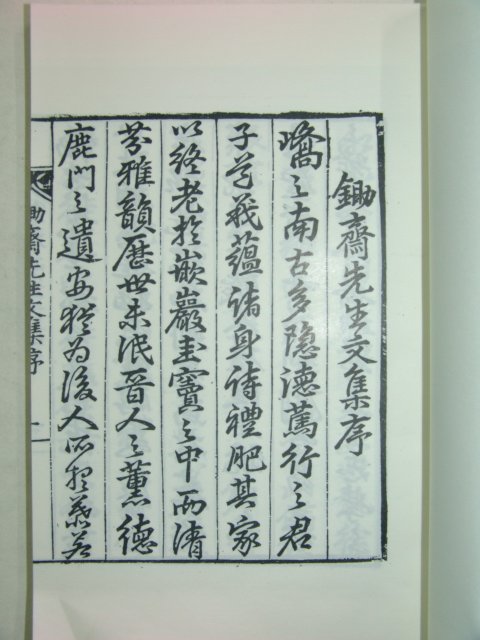 鋤齋先生文集序
嶠之南古多隱德篤行之君
子道義蘊諸身詩禮肥其家
以終老於嵌巖圭竇之中而清
芬雅韻歷世未泯晉人之薰德
鹿門之遺安猶爲後人所想慕若
鋤齋先生文集序
一